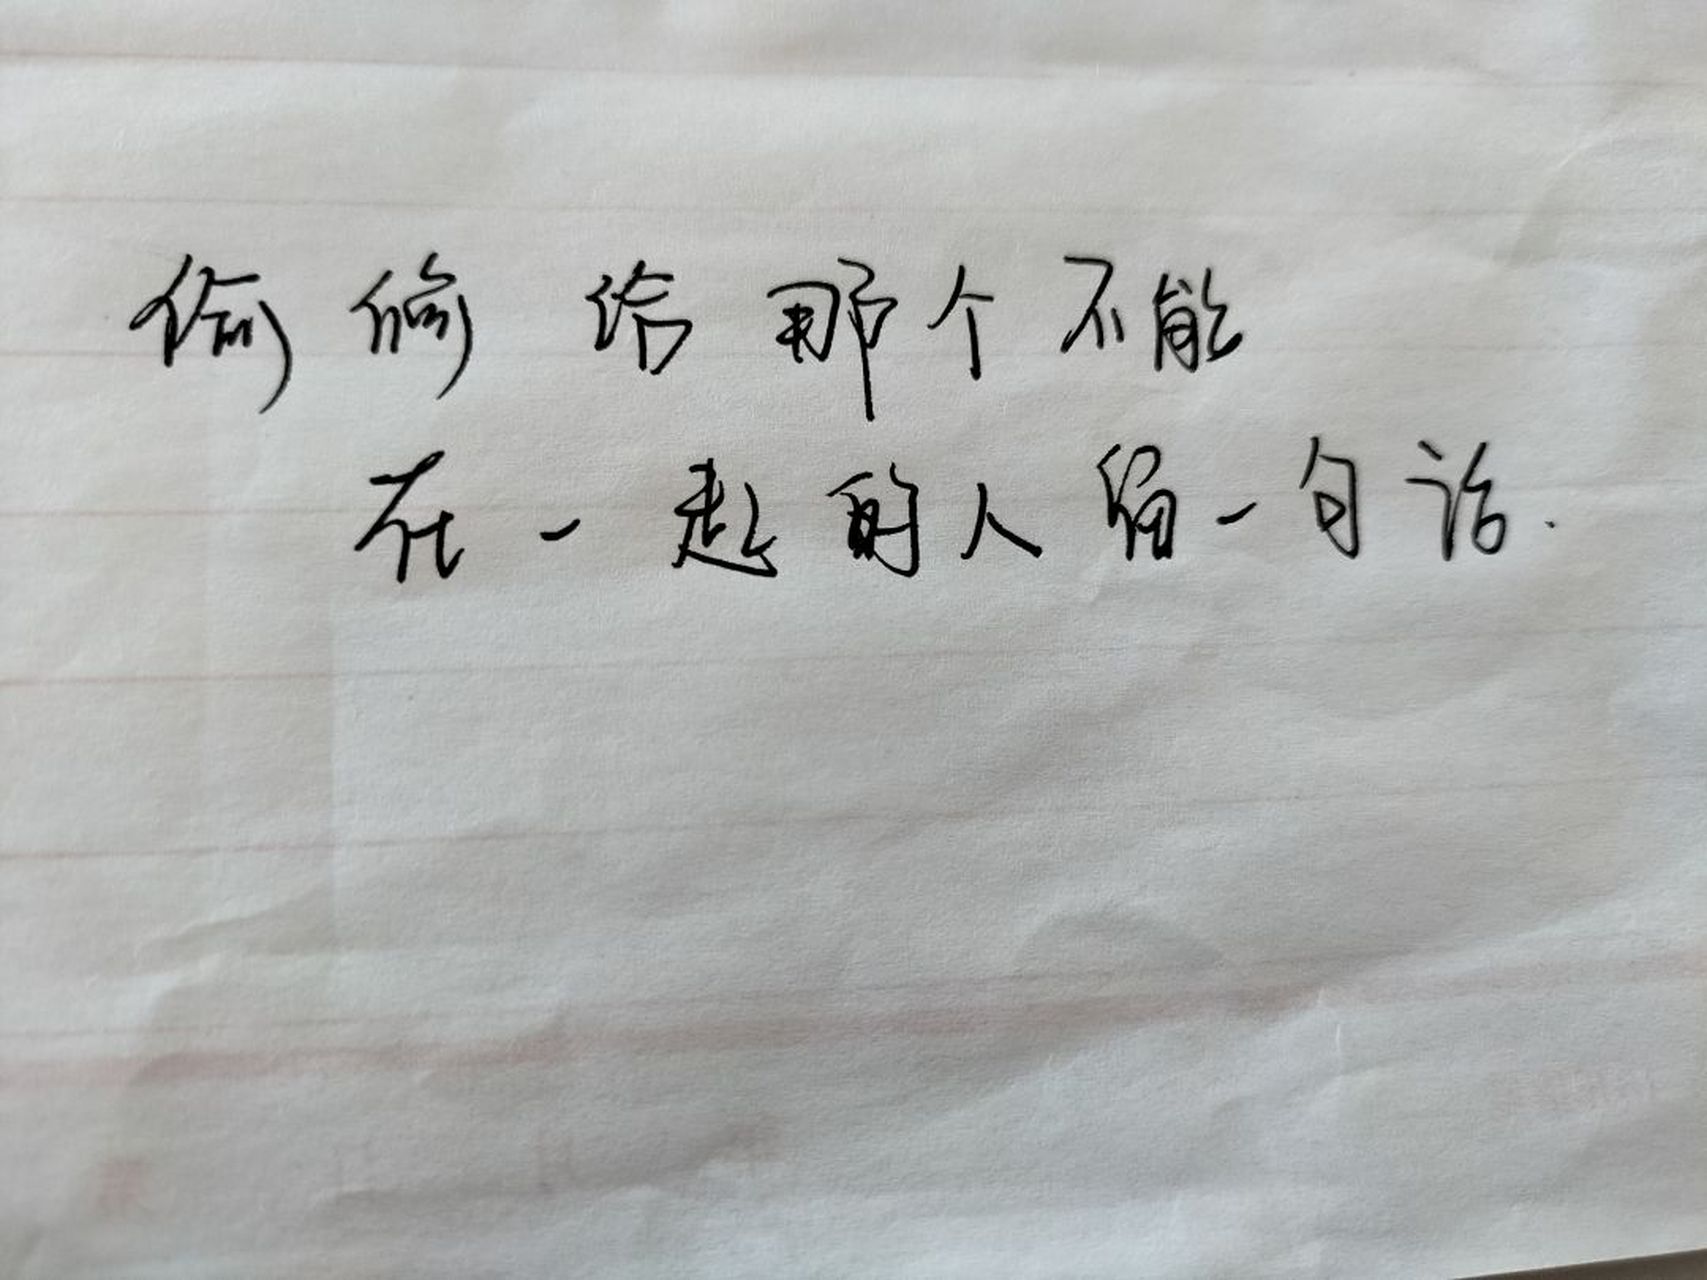 偷偷给那个不能
在一起的人留一句话.